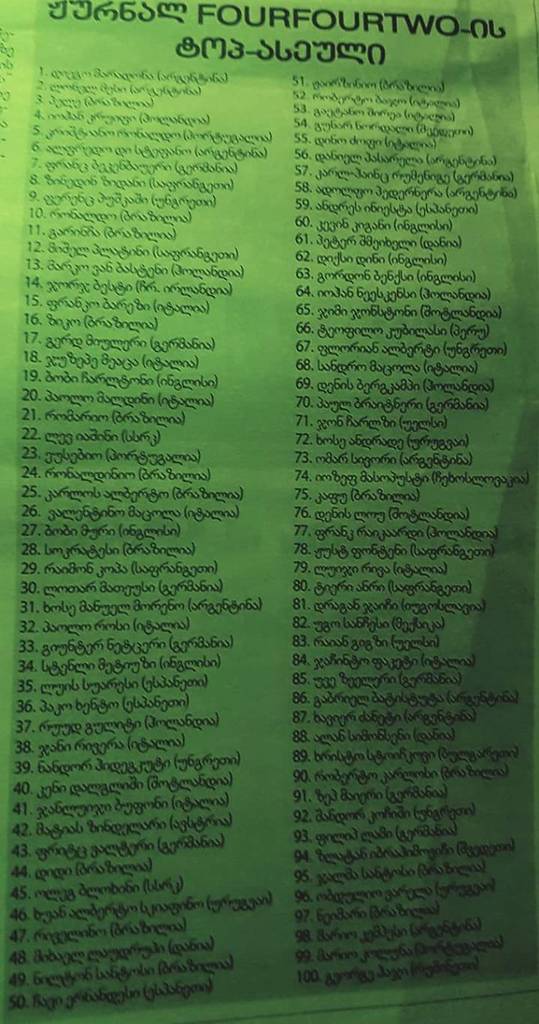 ჟურნალ FOURFOURTWO-ის
ტოპ-ასეული
1. დიეგო მარადონა (არგენტინა)
2. ლიონელ მესი (არგენტინა)
3. პელე (ბრაზილია)
4. იოჰან კრუიფი (ჰოლანდია)
5. კრიშტიანო რონალდო (პორტუგალია)
6. ალფრედო დი სტეფანო (არგენტინა)
7. ფრანც ბეკენბაუერი (გერმანია)
8. ზინედინ ზიდანი (საფრანგეთი)
9. ფერენც პუშკაში (უნგრეთი)
10. რონალდო (ბრაზილია)
11. გარინჩა (ბრაზილია)
12. მიშელ პლატინი (საფრანგეთი)
13. მარკო ვან ბასტენი (ჰოლანდია)
14. ჯორჯ ბესტი (ჩრ. ირლანდია)
15. ფრანკო ბარეზი (იტალია)
16. ზიკო (ბრაზილია)
17. გერდ მიულერი (გერმანია)
18. ჯუზეპე მეაცა (იტალია)
19. ბობი ჩარლტონი (ინგლისი)
20. პაოლო მალდინი (იტალია)
21. რომარიო (ბრაზილია)
22. ლევ იაშინი (სსრკ)
23. ეუსებიო (პორტუგალია)
24. რონალდინიო (ბრაზილია)
25. კარლოს ალბერტო (ბრაზილია)
26. ვალენტინო მაცოლა (იტალია)
27. ბობი მური (ინგლისი)
28. სოკრატესი (ბრაზილია)
29. რაიმონ კოპა (საფრანგეთი)
30. ლოთარ მათეუსი (გერმანია)
31. ხოსე მანუელ მორენო (არგენტინა)
32. პაოლო როსი (იტალია)
33. გიუნტერ ნეტცერი (გერმანია)
34. სტენლი მეტიუზი (ინგლისი)
35. ლუის სუარესი (ესპანეთი)
36. პაკო ხენტო (ესპანეთი)
37. რუუდ გულიტი (ჰოლანდია)
38. ჯანი რივერა (იტალია)
39. ნანდორ ჰიდეგკუტი (უნგრეთი)
40. კენი დალგლიში (შოტლანდია)
41. ჯანლუიჯი ბუფონი (იტალია)
42. მატიას ზინდელარი (ავსტრია)
43. ფრიტც ვალტერი (გერმანია)
44. დიდი (ბრაზილია)
45. ოლეგ ბლოხინი (სსრკ)
46. ხუან ალბერტო სკიაფინო (ურუგვაი)
47. რიველინო (ბრაზილია)
48. მიხაელ ლაუდრუპი (დანია)
49. ნილტონ სანტოსი (ბრაზილია)
50. ჩავი ერნანდესი (ესპანეთი)
51. ჟაირზინიო (ბრაზილია)
52. რობერტო ბაჯო (იტალია)
53. გაეტანო შირეა (იტალია)
54. გუნარ ნორდალი (შვედეთი)
55. დინო ძოფი (იტალია)
56. დანიელ პასარელა (არგენტინა)
57. კარლ-ჰაინც რუმენიგე (გერმანია)
58. ადოლფო პედერნერა (არგენტინა)
59. ანდრეს ინიესტა (ესპანეთი)
60. კევინ კიგანი (ინგლისი)
61. პეტერ შმეიხელი (დანია)
62. დიქსი დინი (ინგლისი)
63. გორდონ ბენქსი (ინგლისი)
64. იოჰან ნეესკენსი (ჰოლანდია)
65. ჯიმი ჯონსტონი (შოტლანდია)
66. ტეოფილო კუბილასი (პერუ)
67. ფლორიან ალბერტი (უნგრეთი)
68. სანდრო მაცოლა (იტალია)
69. დენის ბერგკამპი (ჰოლანდია)
70. პაულ ბრაიტნერი (გერმანია)
71. ჯონ ჩარლზი (უელსი)
72. ხოსე ანდრადე (ურუგვაი)
73. ომარ სივორი (არგენტინა)
74. იოზეფ მასოპუსტი (ჩეხოსლოვაკია)
75. კაფუ (ბრაზილია)
76. დენის ლოუ (შოტლანდია)
77. ფრანკ რაიკაარდი (ჰოლანდია)
78. ჟუსტ ფონტენი (საფრანგეთი)
79. ლუიჯი რივა (იტალია)
80. ტიერი ანრი (საფრანგეთი)
81. დრაგან ჯაიჩი (იუგოსლავია)
82. უგო სანჩესი (მექსიკა)
83. რაიან გიგზი (უელსი)
84. ჯაჩინტო ფაკეტი (იტალია)
85. უვე ზეელერი (გერმანია)
86. გაბრიელ ბატისტუტა (არგენტინა)
87. ხავიერ ძანეტი (არგენტინა)
88. ალან სიმონსენი (დანია)
89. ხრისტო სტოიჩკოვი (ბულგარეთი)
90. რობერტო კარლოსი (ბრაზილია)
91. ზეპ მაიერი (გერმანია)
92. შანდორ კოჩიში (უნგრეთი)
93. ფილიპ ლამი (გერმანია)
94. ზლატან იბრაჰიმოვიჩი (შვედეთი)
95. ჯალმა სანტოსი (ბრაზილია)
96. ობდულიო ვარელა (ურუგვაი)
97. ნეიმარი (ბრაზილია)
98. მარიო კემპესი (არგენტინა)
99. მარიო კოლუნა (პორტუგალია)
100. გეორგე ჰაჯი (რუმინეთი)